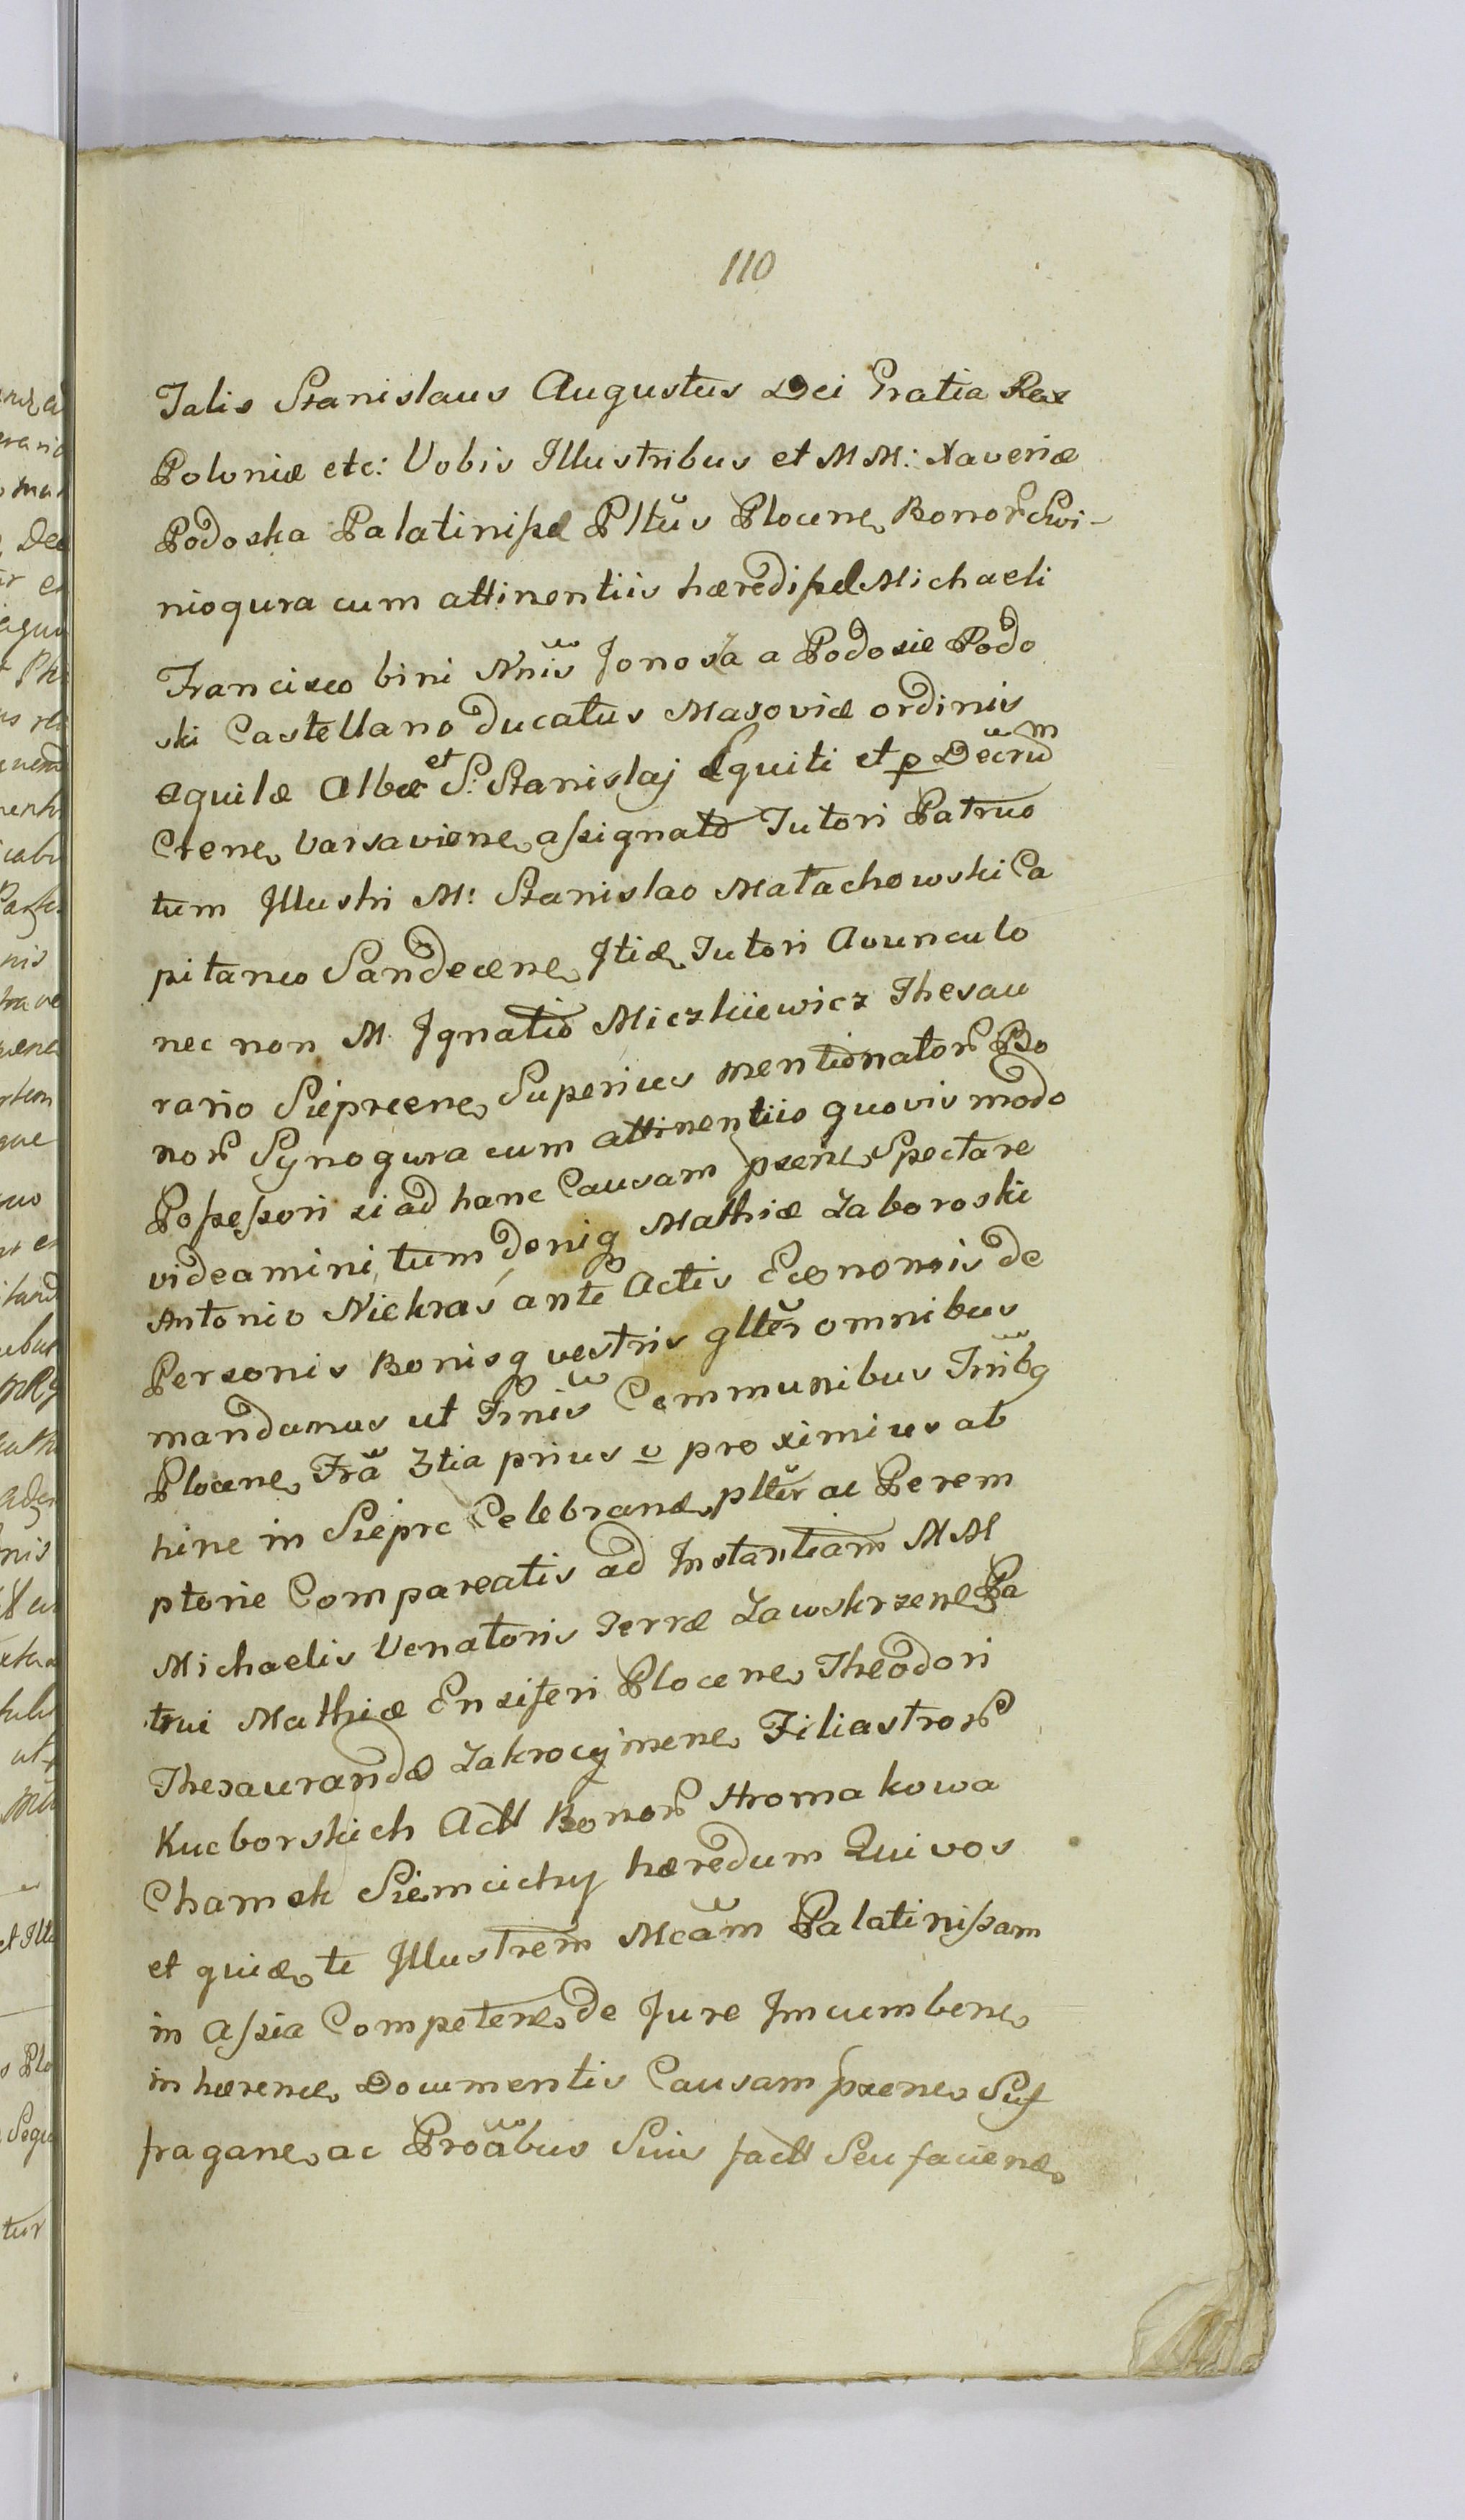 110
Talis Stanislaus Augustus Dei Gratia Rex
Poloniæ etc: Vobis Illustribus et MM: Xaveriæ
Podoska Palatinissæ Pltũs Plocene Bonoȓ Swi-
niogura cum attinentiis hæredissæ Michaeli
Francisco bini Nnis Jonosza a Podosie Podo
ski Castellano Ducatus Masoviæ ordinis
Aquilæ Albæ et S: Stanislaj Equiti et p Decrum
Crene Varsaviene assignato Tutori Patruo
tum Illustri M: Stanislao Małachowski Ca
pitaneo Sandecene Itiæ Tutori Avunculo
nec non M. Ignatio Miczkiewicz Thesau
rario Sieprcene Superius mentionatoȓ Bo
noȓ Synogura cum attinentiis quovis modo
Possessori si ad hanc Causam psene Spectare
videamini, tum deniq Mathiæ Zaboroski
Antonio Niekraś ante Actis Economis de
Personis Bonisq vestris glter omnibus
mandamus ut Tnis Communibus Tnibq
Plocene Tra 3tia prius v proximius ab
hinc in Sieprc Celebranæ plter ac Perem
ptorie Compareatis ad Instantiam MM
Michaelis Venatoris Terræ Zawskrzene Pa
trui Mathiæ Ensiferi Plocene Theodori
Thesaurandæ Zakrocymene Filiastroȓ
Kucborskich Actt Bonoȓ Stromakowa
Chamsk Siemcichy hæredum Qui vos
et quiæ te Illustrem Mcam Palatinissam
in Assia Competene de Jure Imcumbene
inhærene Documentis Causam psene Suf
fragane ac Proabus Suis factt Seu faciene